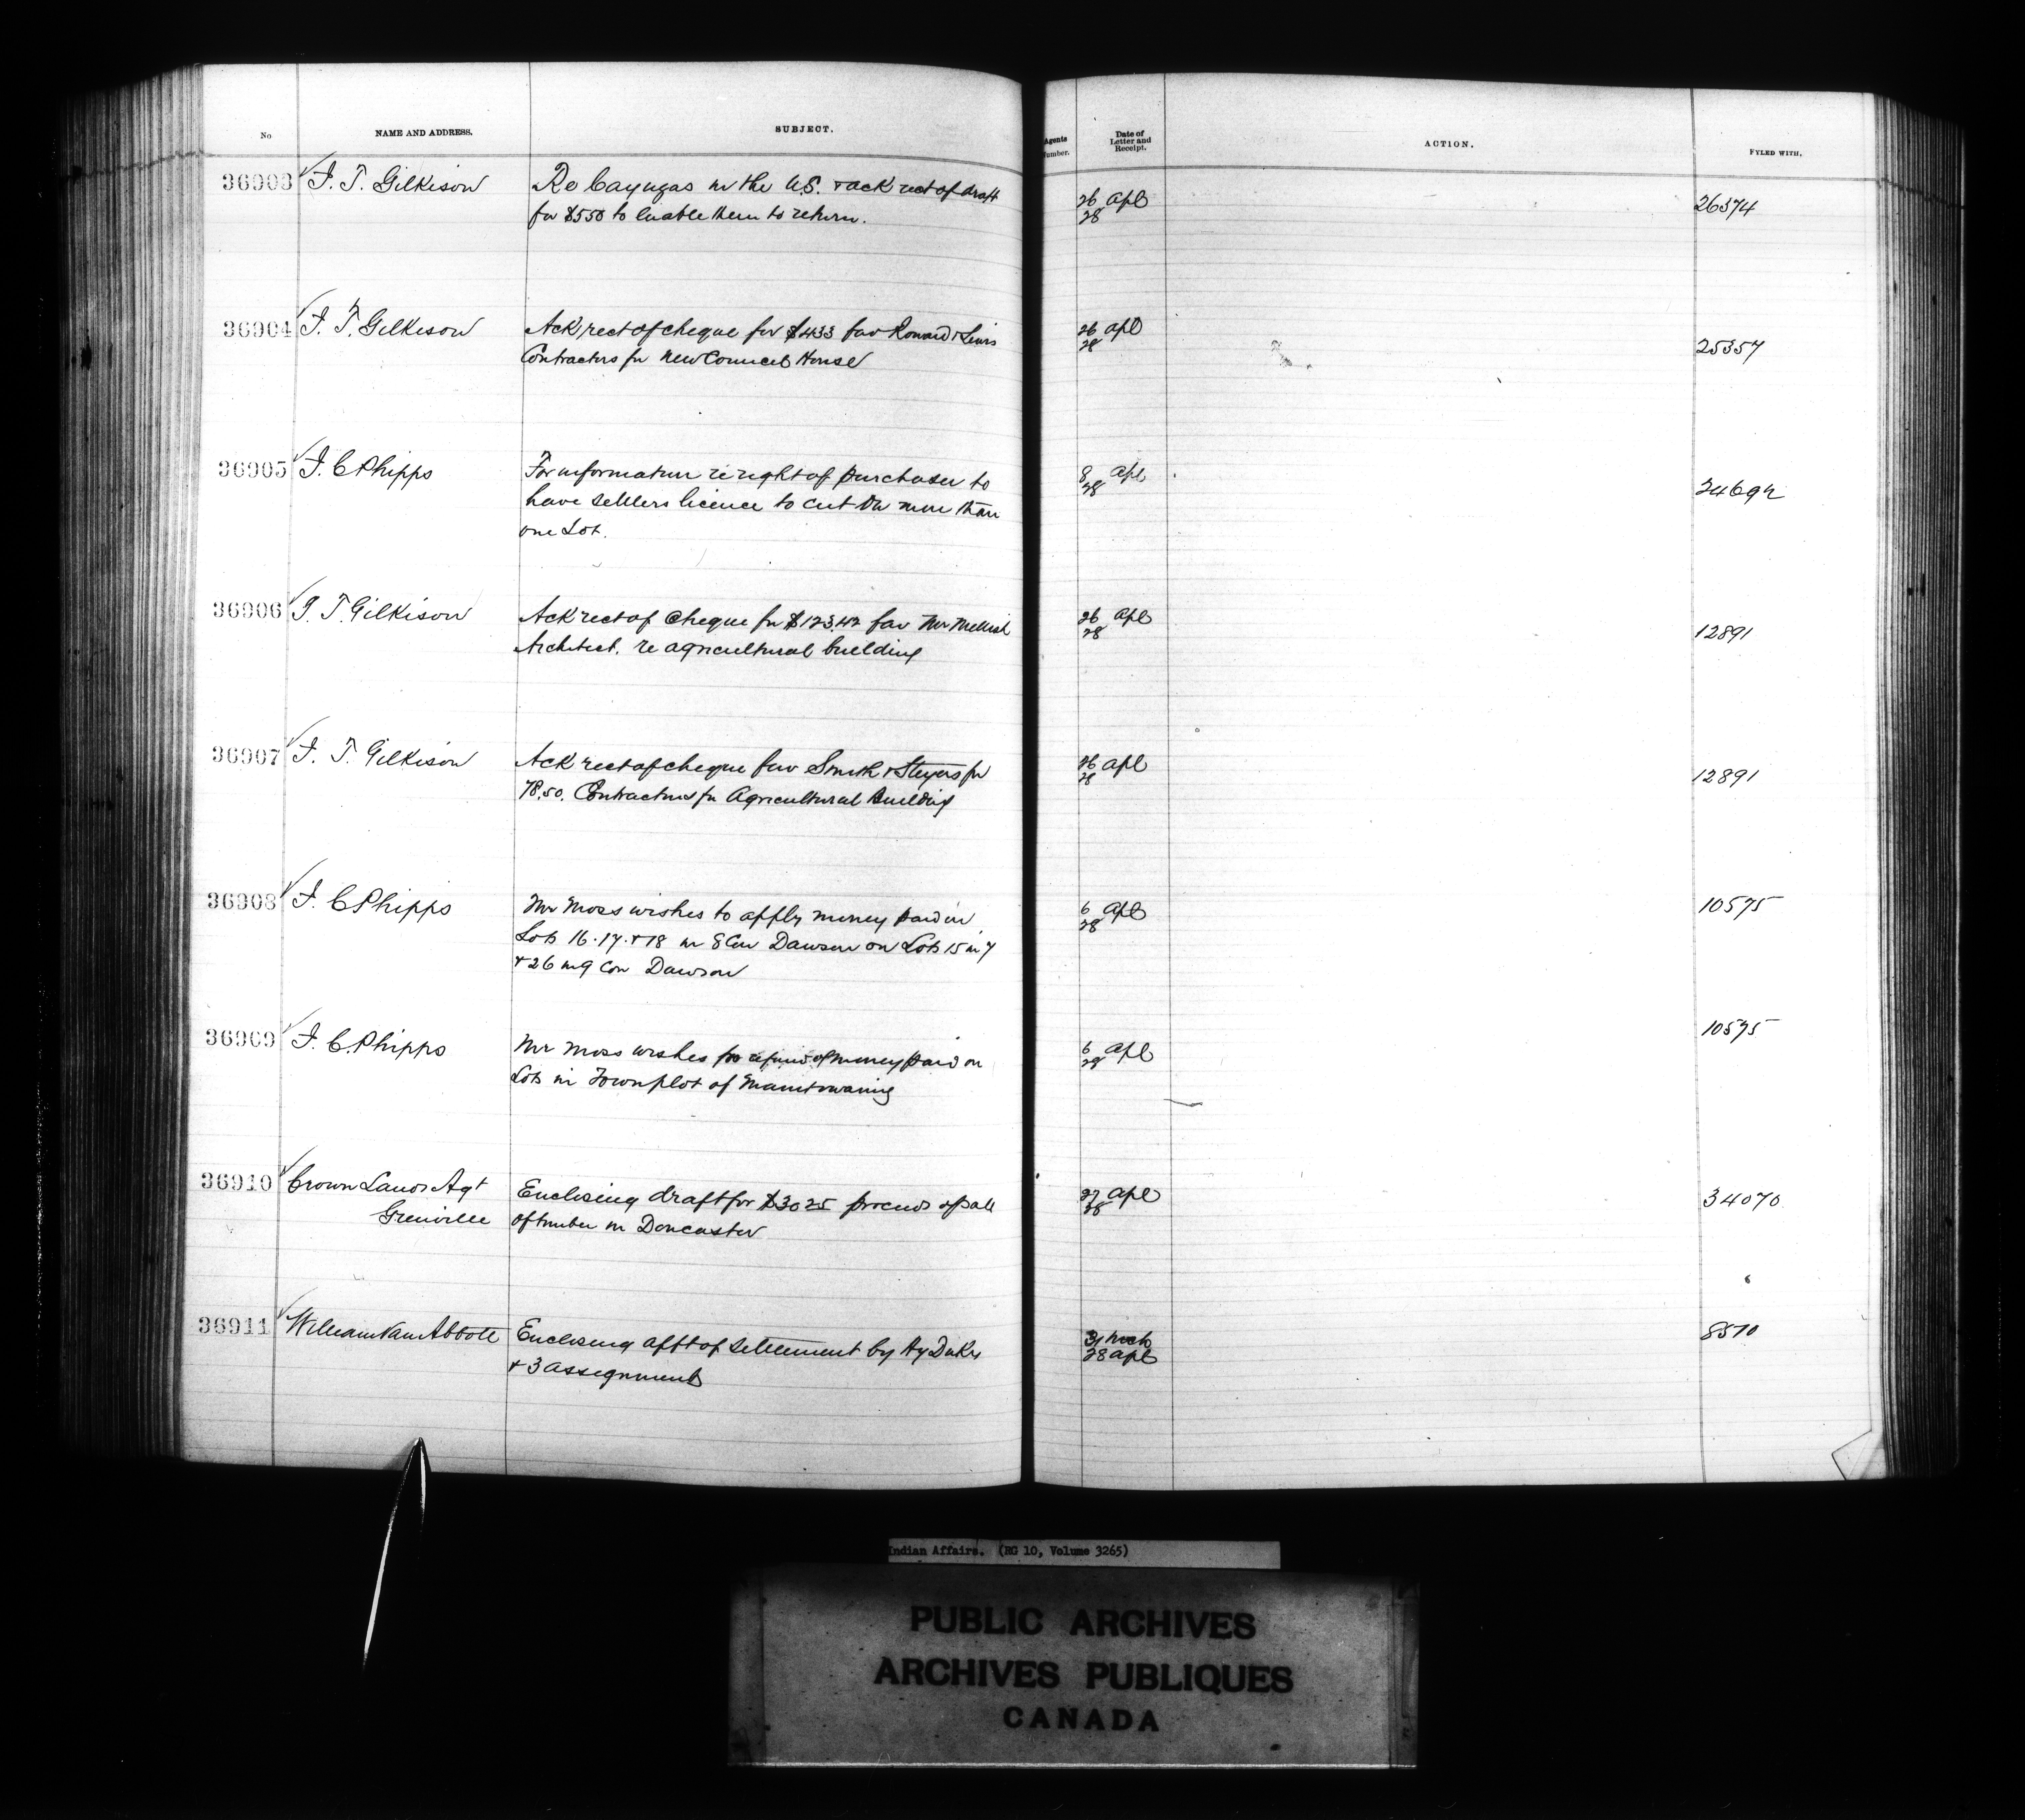 No
NAME AND ADDRESS.
SUBJECT.
Agents
Number.
Date of
Letter and
Receipt.
ACTION.
FYLED WITH.
36903 J. T. Gilkison
Re Cayugas in the U.S. & ack rect of draft
for $550 to enable them to return.
26 Apl
28
26374
36904 J. T. Gilkison
Ack rect of cheque for $433 fav & Lewis
Contractors for New Council House
26 Apl
28
25357
36905 J. C Phipps
For information re right of purchaser to
have settlers licence to cut on more than
one Lot.
8 Apl
28
36906 J. T. Gilkison
Ack rect of Cheque for $123.42 fav Mr Mellish
Architect. re agricultural building
26 Apl
28
12891
36907 J. T. Gilkison
Ack rect of cheque fav Smith & for
78.50. Contractors for Agricultural Building
26 Apl
28
12891
36908 J. C Phipps
Mr Moss wishes to apply money paid in
Lots 16.17.&18 in 8 Con Dawson on Lots 15 in 7
& 26 in 9 Con Dawson
6 Apl
28
10575
36909 J. C. Phipps
Mr Moss wishes for refund of money paid on
Lots in Townplot of Manitowaning
6 Apl
28
10575
36910 Crown Lands Agt
Grenville
Enclosing draft for $30 25 proceeds of sale
of timber in Doncaster
27 Apl
28
34070
36911 William Van Abbott
Enclosing afft of settlement by Hy Duke
& 3 assignments
31 Mch
28 Apl
8570
Indian Affairs. (RG 10, Volume 3265)
PUBLIC ARCHIVES
ARCHIVES PUBLIQUES
CANADA